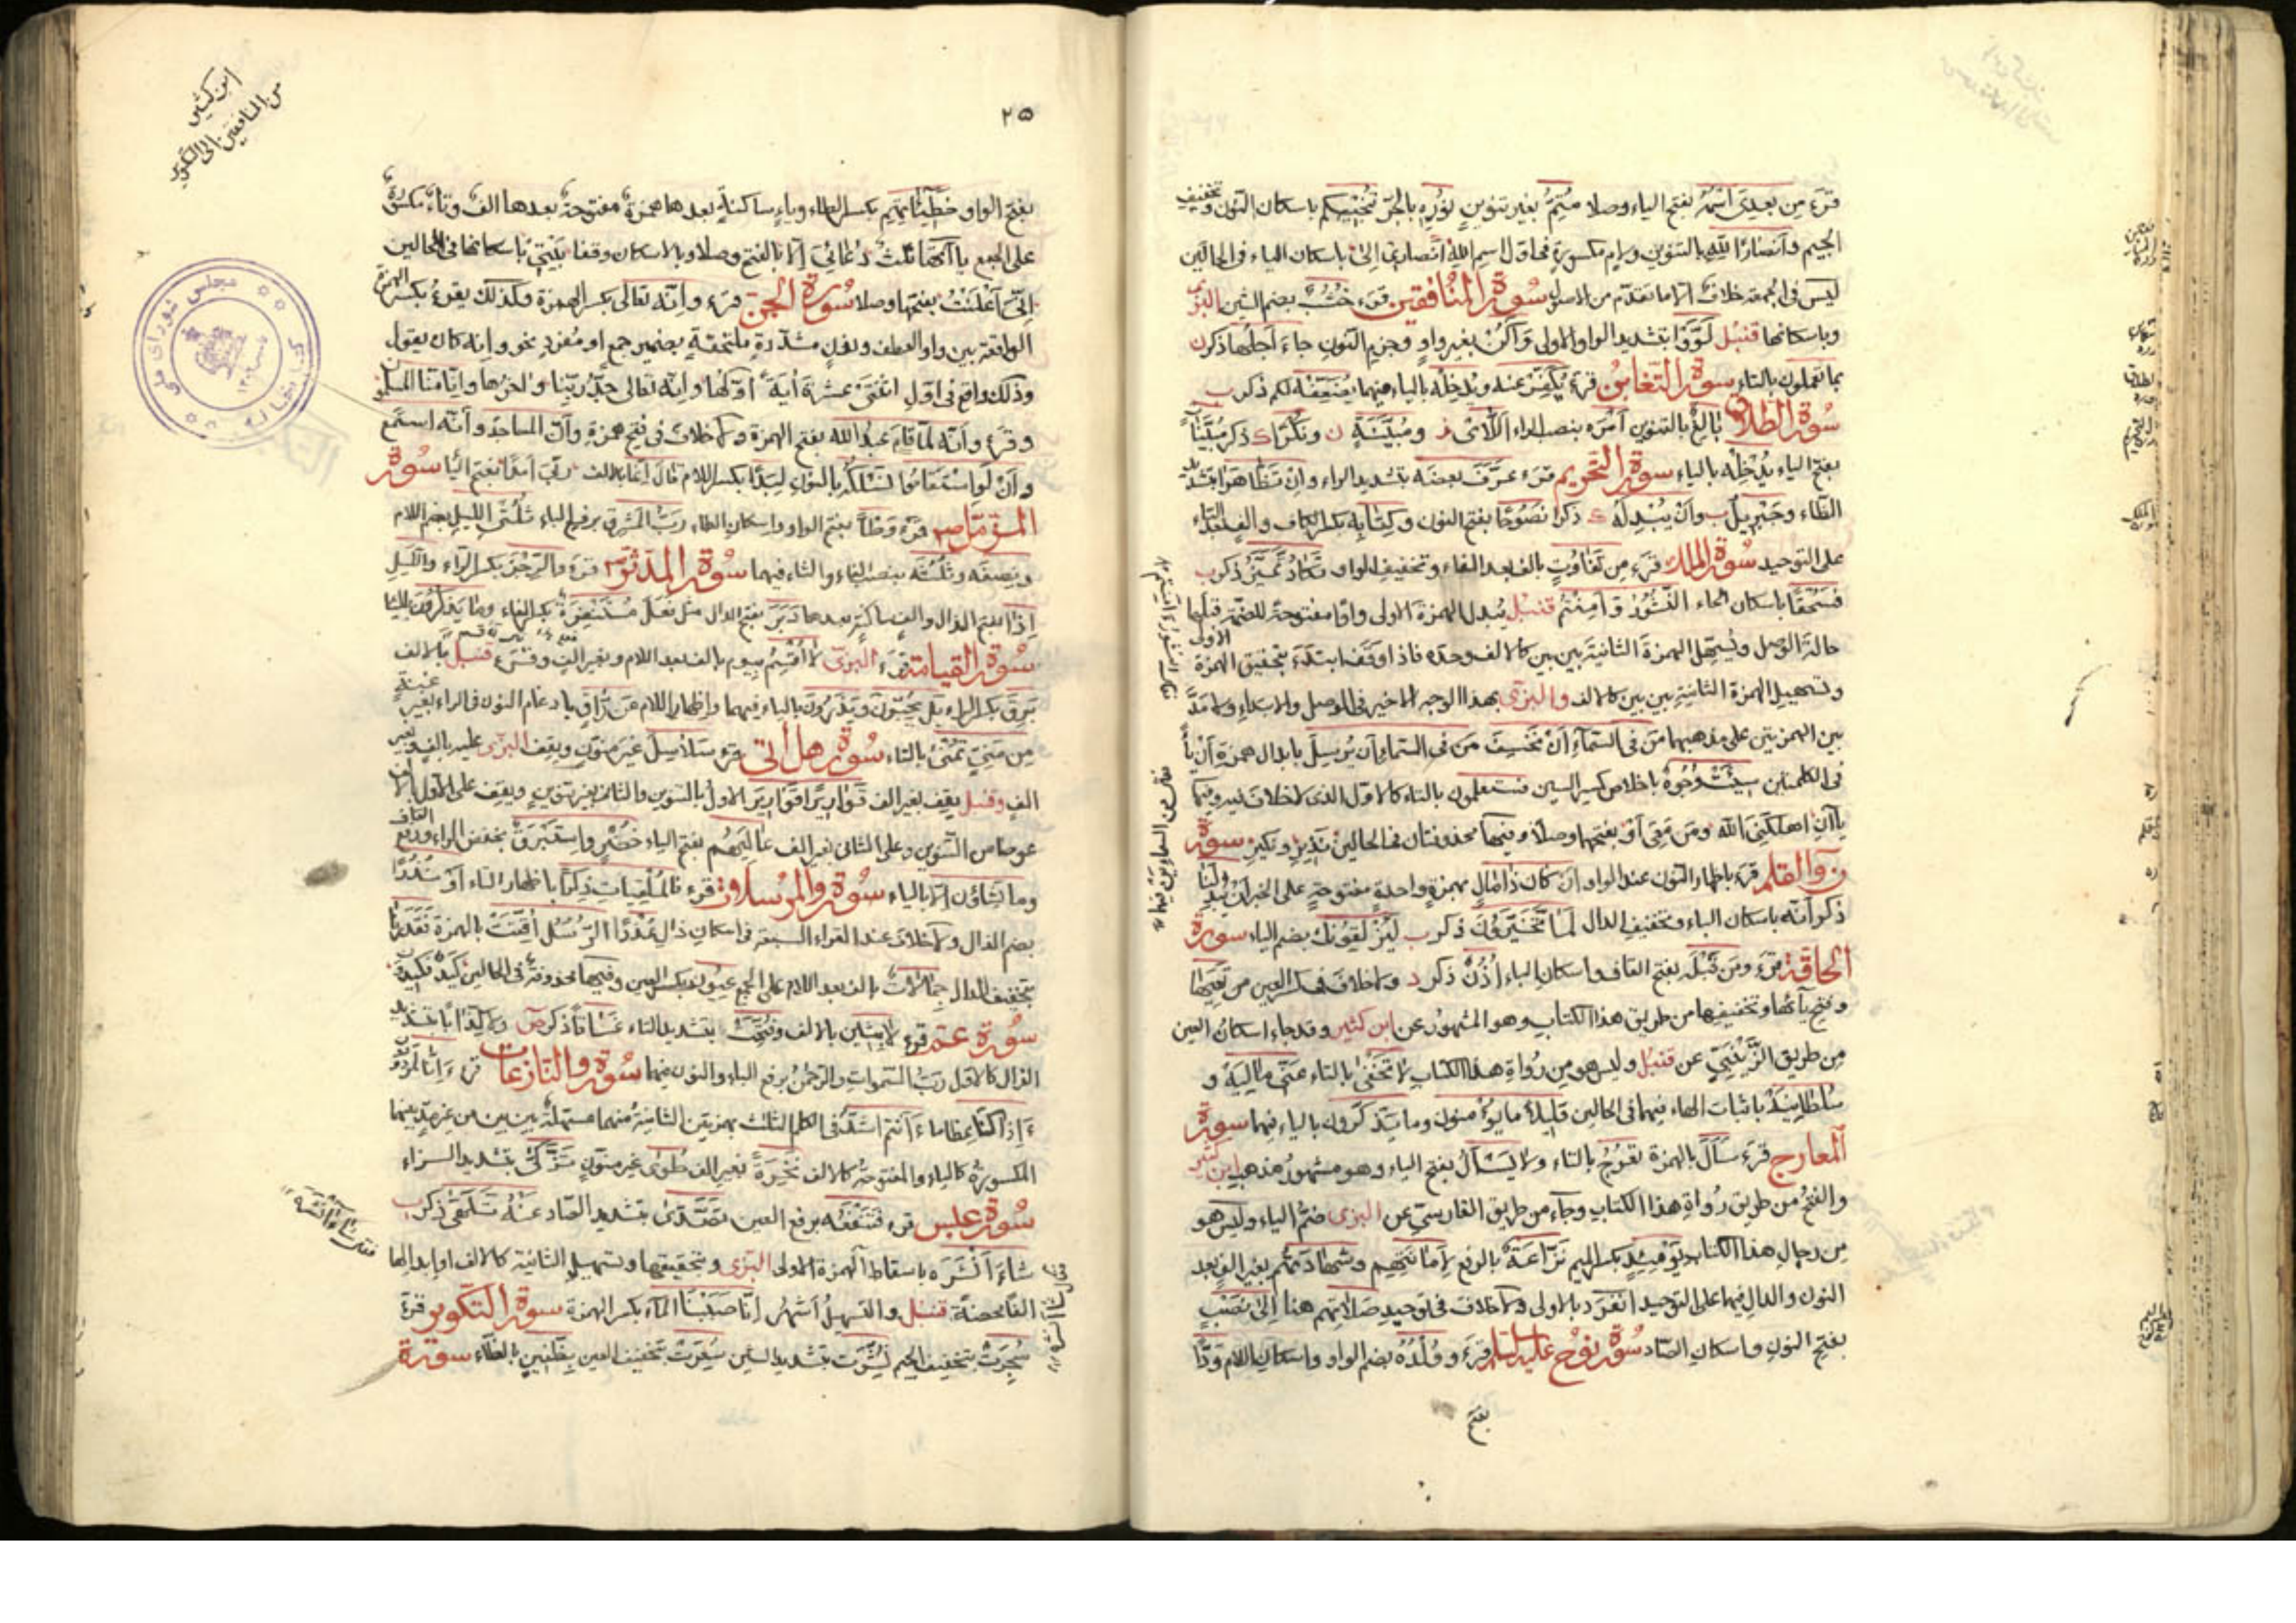 قرء من بعدى اسمه بفتح الياء وصلا متم بغير تنوين نوره بالجر تنجيكم باسكان النون وتخفيف
الجيم وانصارا لله بالتنوين ولام مكسورة فى اول اسم الله انصارى الى باسكان الياء فى الحالين
ليس فى الجمعة خلاف الا ما تقدم من الاصول سورة المنافقين قرء خشب بضم الشين البزى
وباسكانها قنبل لووا بتشديد الواو الاولى واكن بغير واو وجزم النون جاء اجلها ذكر
بما تعملون بالتاء سورة التغابن قرء يكفر عنه ويدخله بالياء فيهما يضعفه لكم ذكر
سورة الطلاق بالغ بالتنوين امره بنصب الراء اللائى ومبينة ونكرا ذكر مبينات
بفتح الياء يدخله بالياء سورة التحريم قرء عرف بعضه بتشديد الراء وان تظاهرا بتشديد
الظاء وجبريل وان يبدله ذكرا نصوحا بفتح النون وكتابه بكسر الكاف والف بعد التاء
على التوحيد سورة الملك قرء من تفاوت بالف بعد الفاء وتخفيف الواو تكاد تميز ذكر
فسحقا باسكان الحاء النشور وامنتم قنبل يبدل الهمزة الاولى واوا مفتوحة للضمة قبلها
حالة الوصل ويسهل الهمزة الثانية بين بين كالالف وحده فاذا وقف ابتدء بتحقيق الهمزة الاولى
وتسهيل الهمزة الثانية بين بين كالالف والبزى بهذا الوجه الاخير فى الوصل والابتداء ولا مد
بين الهمزتين على مذهبيهما من فى السماء ان يخسف من فى السماء ان يرسل بابدال همزة ان ياء
فى الكلمتين سيئت وجوه باخلاص كسر السين فستعلمون بالتاء كالاول الذى لا خلاف فيه وفيها
ياآن اهلكنى الله ومن معى او بفتحهما وصلا وفيها محذوفتان فى الحالين نذير ونكير سورة
ن والقلم قرء باظهار النون عند الواو ان كان ذا مال بهمزة واحدة مفتوحة على الخبر ان يبدلنا
ذكر انه باسكان الباء وتخفيف الدال لما تخيرون ذكر ليزلقونك بضم الياء سورة
الحاقة قرء ومن قبله بفتح القاف واسكان الباء اذن ذكر ولا خلاف فى كسر العين من تعيها
وفتح يائها وتخفيفها من طريق هذا الكتاب وهو المشهور عن ابن كثير وقد جاء اسكان العين
من طريق الزينبى عن قنبل وليس هو من رواة هذا الكتاب لا تخفى بالتاء عنى ماليه و
سلطانيه باثبات الهاء فيهما فى الحالين قليلا ما يؤمنون وما يتذكرون بالياء فيهما سورة
المعارج قرء سأل بالهمزة تعرج بالتاء ولا يسأل بفتح الياء وهو مشهور مذهب ابن كثير
والفتح من طريق رواة هذا الكتاب وجاء من طريق الفارسى عن البزى ضم الياء وليس هو
من رجال هذا الكتاب يومئذ بكسر الميم نزاعة بالرفع لاماناتهم وشهادتهم بغير الف بعد
النون والدال فيهما على التوحيد انفرد بالاولى ولا خلاف فى توحيد صلاتهم هنا الى نصب
بفتح النون واسكان الصاد سورة نوح عليه السلام قرء وولده بضم الواو واسكان اللام ودا
بفتح
٢٥
ابن كثير
من المنافقين الى التكوير
بفتح الواو خطيئاتهم بكسر الطاء وياء ساكنة بعدها همزة مفتوحة بعدها الف وتاء مكسورة
على الجمع ياآتها ثلث دعائى الا بالفتح وصلا وبالاسكان وقفا بيتى باسكانها فى الحالين
انى اعلنت بفتحها وصلا سورة الجن قرء وانه تعالى بكسر الهمزة وكذلك يقرء بكسر الهمزة
الواقعة بين واو العطف ونون مشددة ملتحقة بضمير جمع او مفرد نحو وانه كان يقول
وذلك واقع فى اول اثنتى عشرة اية اولها وانه تعالى جد ربنا واخرها وانا منا المسلمون
وقرء وانه لما قام عبد الله بفتح الهمزة ولا خلاف فى فتح همزة وان المساجد وانه استمع
وان لو استقاموا نسلكه بالنون لبدا بكسر اللام قال انما بالالف ربى امدا بفتح اليا سورة
المزمل قرء وطأ بفتح الواو واسكان الطاء رب المشرق برفع الباء ثلثى الليل بضم اللام
ونصفه وثلثه بنصب الفاء والثاء فيهما سورة المدثر قرء والرجز بكسر الراء والليل
اذا بفتح الذال والف ساكنة بعدها دبر بفتح الدال مثل فعل مستنفرة بكسر الفاء وما يذكرون بالياء
سورة القيامة قرء البزى لا اقسم بيوم بالف بعد اللام وبغير الف وقرء قنبل بلا الف
برق بكسر الراء بل يحبون ويذرون بالياء فيهما واظهار اللام من راق بادغام النون فى الراء بغير غنة
من منى تمنى بالتاء سورة هل اتى قرء سلاسل غير منون ويقف البزى عليه بالف وبغير
الف وقنبل يقف بغير الف قواريرا قوارير الاول بالتنوين والثانى بغير تنوين ويقف على الاول بالف
عوضا من التنوين وعلى الثانى بغير الف عاليهم بفتح الياء خضر واستبرق بخفض الراء ورفع القاف
وما يشاؤن الا بالياء سورة والمرسلات قرء فالملقيات ذكرا باظهار التاء او نذرا
بضم الذال ولا خلاف عند القراء السبعة فى اسكان ذال عذرا الرسل اقتت بالهمزة فقدرنا
بتخفيف الدال جمالات بالف بعد اللام على الجمع عيون بكسر العين وفيها محذوفة فى الحالين كيد فكيدون
سورة عم قرء لابثين بالالف وفتحت بتشديد التاء غساقا ذكر ص ولا كذابا بتشديد
الذال كالاول رب السموات والرحمن برفع الباء والنون فيهما سورة والنازعات قرء ءانا لمردودون
ءاذا كنا عظاما ءانتم اشد فى الكلم الثلث بهمزتين الثانية منهما مسهلة بين بين من غير مد بينهما
المكسورة كالياء والمفتوحة كالالف نخرة بغير الف طوى غير منون تزكى بتشديد الزاء
سورة عبس قرء فتنفعه برفع العين تصدى بتشديد الصاد عنه تلهى ذكر
شاء انشره باسقاط الهمزة الاولى البزى وبتحقيقها وتسهيل الثانية كالالف او ابدالها
الفا محضة قنبل والتسهيل اشهر انا صببنا الماء بكسر الهمزة سورة التكوير قرء
سجرت بتخفيف الجيم نشرت بتشديد الشين سعرت بتخفيف العين بظنين بالظاء سورة
مجلس شوراى ملى